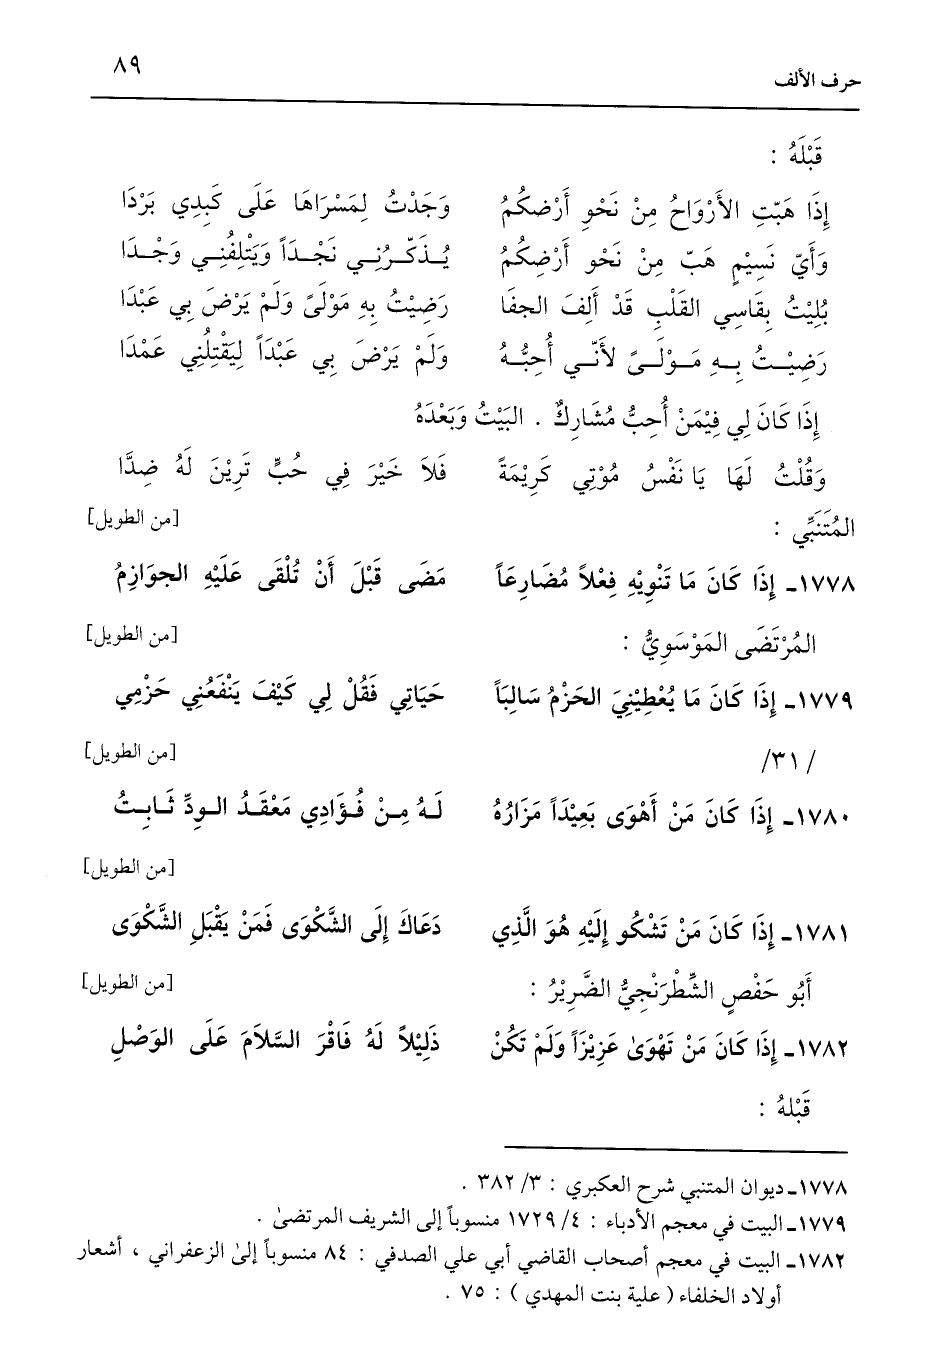 حرف الألف ٨٩
قَبْلَهُ :
إِذَا هَبَّتِ الأَرْوَاحُ مِنْ نَحْوِ أَرْضِكُمُ وَجَدْتُ لِمَسْرَاهَا عَلَى كَبِدِي بَرْدَا
وَأَيّ نَسِيْمٍ هَبّ مِنْ نَحْوِ أَرْضِكُمُ يُذَكّرُنِي نَجْدَاً وَيَتْلِفُنِي وَجْدَا
بُلِيْتُ بِقَاسِي القَلْبِ قَدْ أَلِفَ الجفَا رَضِيْتُ بِهِ مَوْلَىً وَلَمْ يَرْضَ بِي عَبْدَا
رَضِيْتُ بِهِ مَوْلَىً لأَنّي أُحِبُّهُ وَلَمْ يَرْضَ بِي عَبْدَاً لِيَقْتِلُنِي عَمْدَا
إِذَا كَانَ لِي فِيْمَنْ أُحِبُّ مُشَارِكٌ . البَيْتُ وَبَعْدَهُ
وَقُلْتُ لَهَا يَا نَفْسُ مُوْتِي كَرِيْمَةً فَلاَ خَيْرَ فِي حُبٍّ تَرِيْنَ لَهُ ضِدَّا
المُتَنَبِّي : [من الطويل]
١٧٧٨ـ إِذَا كَانَ مَا تَنْوِيْهِ فِعْلاً مُضَارِعَاً مَضَى قَبْلَ أَنْ تُلْقَى عَلَيْهِ الجوَازِمُ
المُرْتَضَى المَوْسَوِيُّ : [من الطويل]
١٧٧٩ـ إِذَا كَانَ مَا يُعْطِيْنِيَ الحَزْمُ سَالِبَاً حَيَاتِي فَقُلْ لِي كَيْفَ يَنْفَعُنِي حَزْمِي
/ ٣١/ [من الطويل]
١٧٨٠ـ إِذَا كَانَ مَنْ أَهْوَى بَعِيْدَاً مَزَارُهُ لَهُ مِنْ فُؤَادِي مَعْقَدُ الودِّ ثَابِتُ
[من الطويل]
١٧٨١ـ إِذَا كَانَ مَنْ تَشْكُو إِلَيْهِ هُوَ الَّذِي دَعَاكَ إِلَى الشَّكْوَى فَمَنْ يَقْبَلِ الشَّكْوَى
أَبُو حَفْصٍ الشِّطْرَنْجِيُّ الضَّرِيْرُ : [من الطويل]
١٧٨٢ـ إِذَا كَانَ مَنْ تَهْوَىٰ عَزِيْزَاً وَلَمْ تَكُنْ ذَلِيْلاً لَهُ فَاقْرَ السَّلاَمَ عَلَى الوَصْلِ
قَبْلهُ :
١٧٧٨ـ ديوان المتنبي شرح العكبري : ٣/ ٣٨٢ .
١٧٧٩ـ البيت في معجم الأدباء : ٤/ ١٧٢٩ منسوباً إلى الشريف المرتضىٰ .
١٧٨٢ـ البيت في معجم أصحاب القاضي أبي علي الصدفي : ٨٤ منسوباً إلىٰ الزعفراني ، أشعار
أولاد الخلفاء ( علية بنت المهدي ) : ٧٥ .